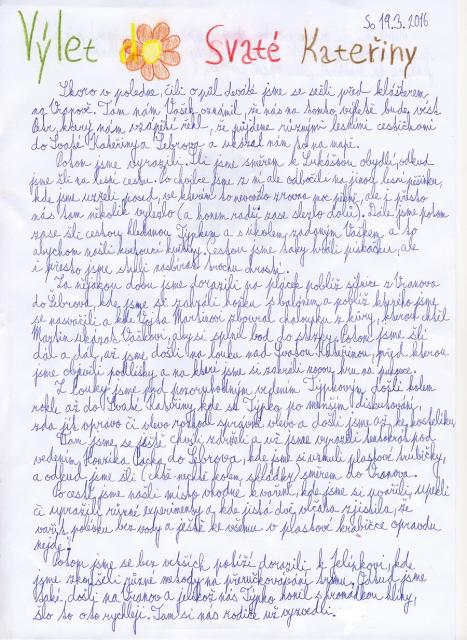 So 19.3.2016
Výlet do Svaté Kateřiny
Skoro v poledne, čili o půl dvanácté jsme se sešli před klášterem
na Vranově. Tam nám Vašek oznámil, že nás na tomto výletě bude vést
Petr, který nám vzápětí řekl, že půjdeme různými lesními cestičkami
do Svaté Kateřiny a Lebrova a ukázal nám to na mapě.
Potom jsme vyrazili. Šli jsme směrem k Lukášovu obydlí, odkud
jsme šli na lesní cestu. Po chvíli jsme z ní ale odbočili na jinou lesní pěšinku,
kde jsme uzřeli posed, ve kterém to nevonělo zrovna moc pěkně, ale i přesto
nás tam několik vylezlo (a honem radši zase slezlo dolů). Dále jsme potom
zase šli cestou hledanou Týpkem a s úkolem zadaným Vaškem, a to
abychom našli kvetoucí květiny. Cestou jsme taky hráli pískačku, ale
i přesto jsme stihli nasbírat trochu
Za nějakou dobu jsme dorazili na plácek poblíž silnice z Vranova
do Lebrova, kde jsme si zahráli hožku s balónem a poblíž kterého jsme
se nasvačili a kde Vojta Martinovi zboural chaloupku z kůry, kterou chtěl
Martin ukázat Vaškovi, aby si splnil bod do stezky. Potom jsme šli
dál a dál, až jsme došli na louku nad Svatou Kateřinou, před kterou
jsme objevili podlésky a na které jsme si zahráli novou hru na
Z louky jsme pod pozoruhodným vedením Týpkovým došli kolem
rokle až do Svaté Kateřiny, kde se Týpko po menším diskutování,
zda jít vpravo či vlevo rozhodl správně vlevo a došli jsme až ke kostelíku.
Tam jsme se ještě chvíli zdrželi a už jsme vyrazili tentokrát pod
vedením Honzíka do Lebrova, kde jsme si vzali plastové krabičky,
a odkud jsme šli (chtě nechtě kolem skládky) směrem do Vranova.
Po cestě jsme našli místo vhodné k vaření, kde jsme si uvařili, upekli
či vyrazili různé experimenty a kde jistá dvě vlčata zjistila, že
vařit polévku bez vody a ještě ke všemu v plastové krabičce opravdu
nejde.
Potom jsme se bez větších potíží dorazili k Jelínkovi, kde
jsme zkoušeli různé metody na přeručkovávání Odtud jsme
také došli na Vranov a jelikož nás Týpko honil s hlíny,
šlo to o to rychleji. Tam si nás rodiče už vyzvedli.